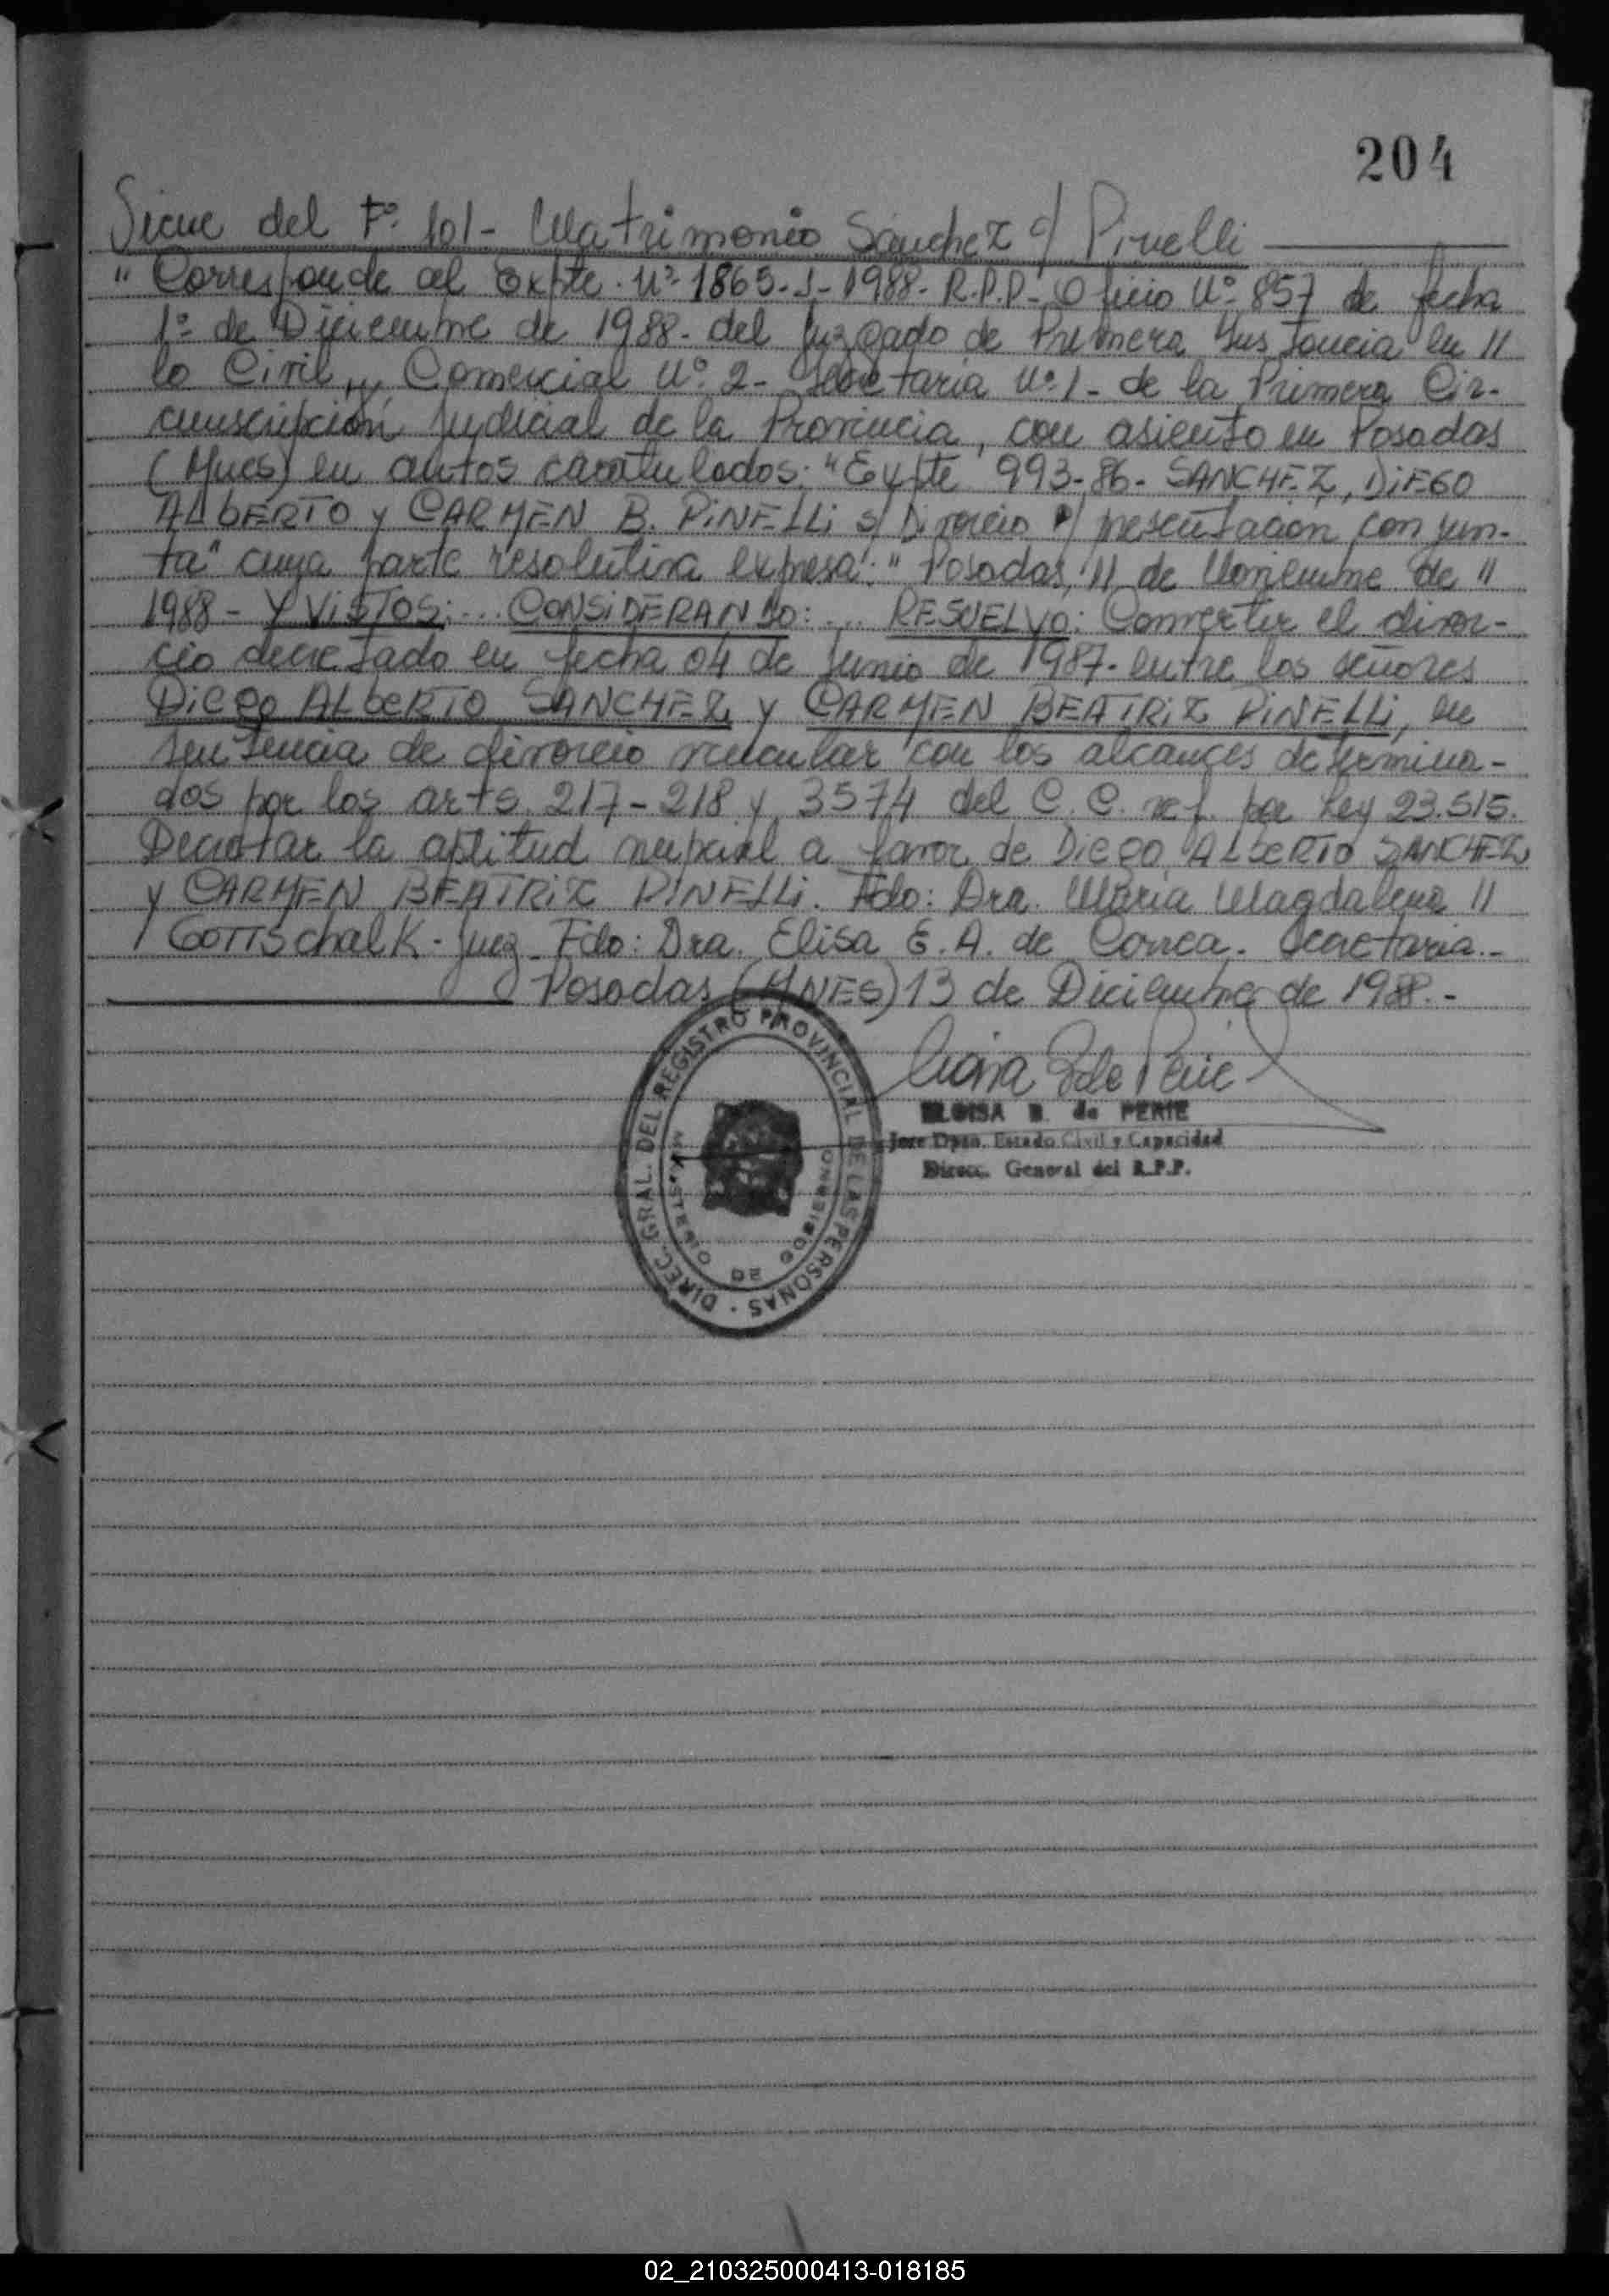 204
Sigue del Fº 101- Matrimonio Sánchez c/ Pinelli
" Corresponde al Expte. Nº 1865-S-1988- R.P.P- Oficio Nº 857 de fecha
1º de Diciembre de 1988- del Juzgado de Primera Instancia en //
lo Civil y Comercial Nº 2- Secretaria Nº 1- de la Primera Cir-
cunscripción Judicial de la Provincia, con asiento en Posadas
(Mnes) en autos caratulados: "Expte 993-86- SANCHEZ, DiEGO
ALbERTO y CARMEN B. PiNELLi s/ Divorcio p/ presentación conjun-
ta" cuya parte resolutiva expresa: " Posadas, 11 de Noviembre de //
1988- Y ViSTOS:... CONSiDERANDO:... RESUELVO: Convertir el divor-
cio decretado en fecha 04 de Junio de 1987- entre los señores
DiEgo ALbERTO SANCHEZ y CARMEN BEATRiZ PiNELLi, en
sentencia de divorcio vincular con los alcances determina-
dos por los arts. 217-218 y 3574 del C.C. ref. por Ley 23.515.
Decretar la aptitud nupcial a favor de DiEgo ALbERTO SANCHEZ
y CARMEN BEATRiZ PiNELLi. Fdo: Dra. María Magdalena //
GOTTSchalK- Juez- Fdo: Dra. Elisa E. A. de Correa- Secretaria.-
Posadas (MNES) 13 de Diciembre de 1988.-
ELOISA B. de PERIE
Jefe Dpto. Estado Civil y Capacidad
Direcc. General del R.P.P.
DIREC. GRAL. DEL REGISTRO PROVINCIAL DE LAS PERSONAS
MINISTERIO DE GOBIERNO
02_210325000413-018185